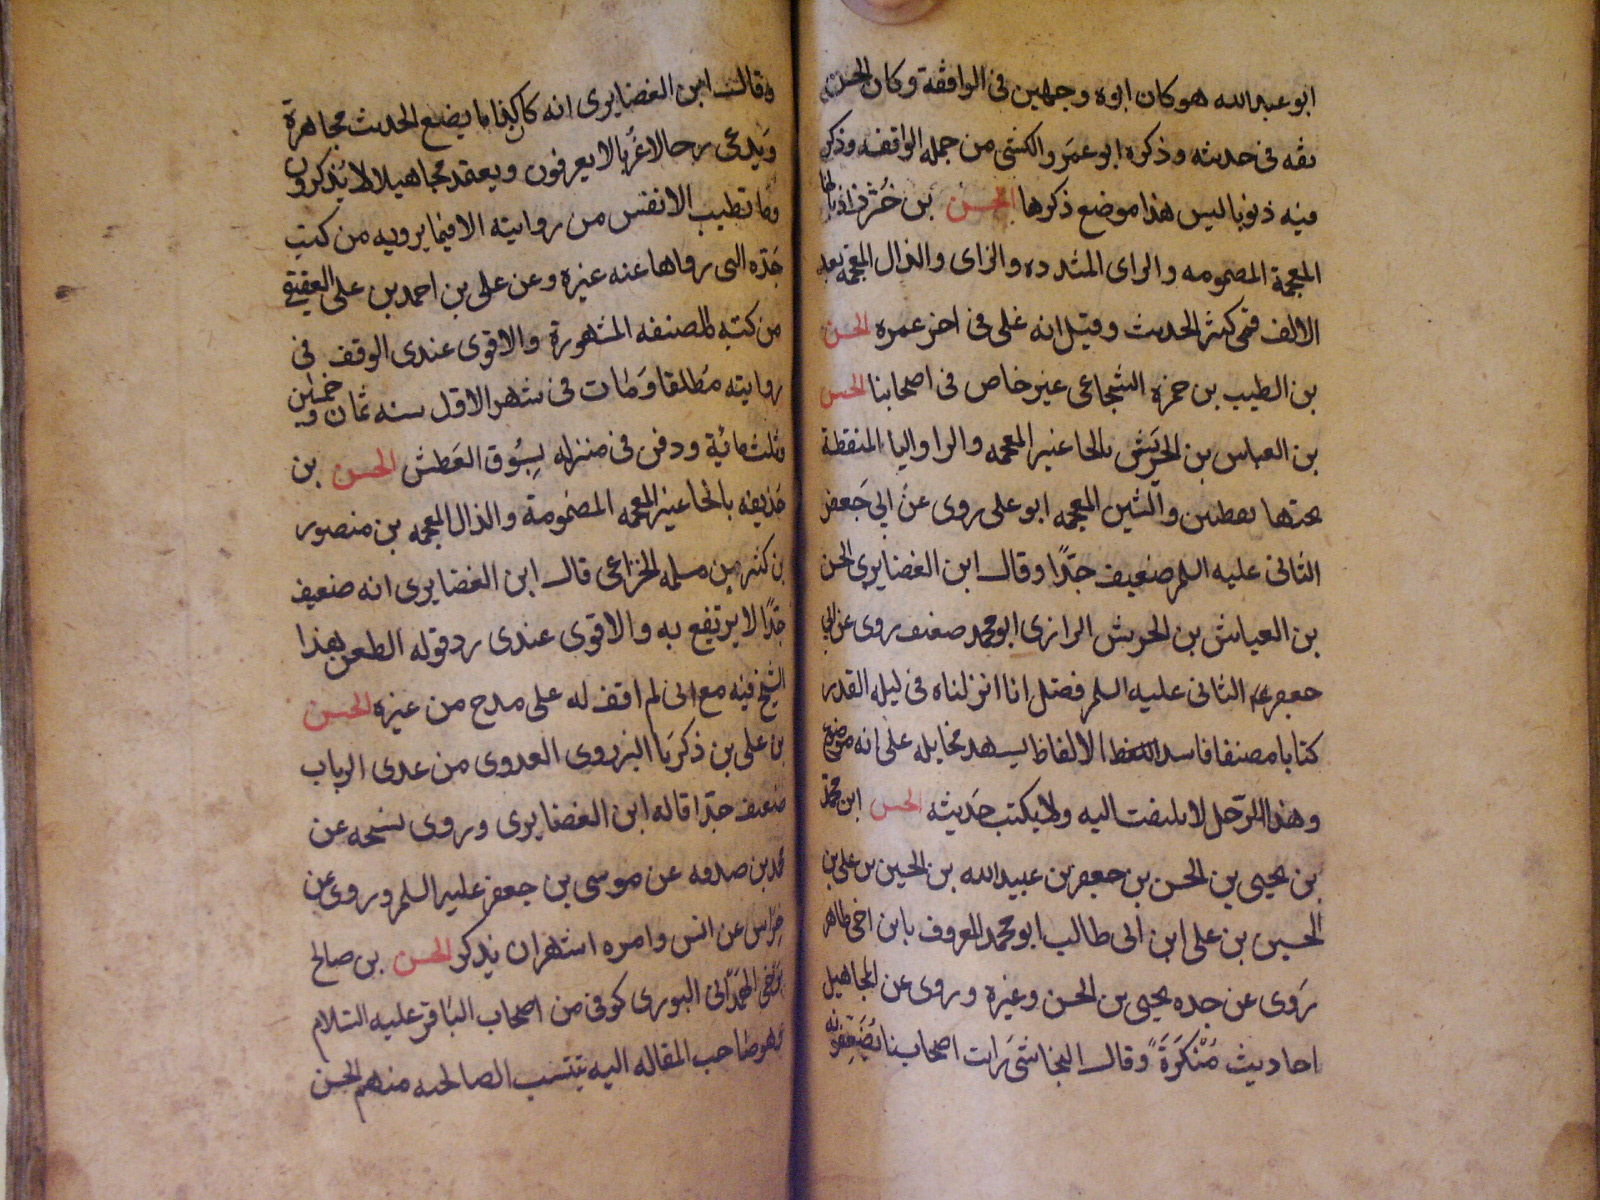 ابو عبد الله هو كان ابوه وجهين فى الواقفة وكان الحسن
ثقه فى حديثه وذكره ابو عمرو الكشى من جمله الواقفه وذكر
فيه ذنوبا ليس هذا موضع ذكرها الحسن بن خُرّزاذ بالخا
المعجمة المضمومه والراى المشدده والزاى والذال المعجمه بعد
الالف قمى كثير الحديث وقيل انه غلى فى اخر عمره الحسن
بن الطيب بن حمزه الشجاعى غير خاص فى اصحابنا الحسن
بن العباس بن الحَرِيش بالحا غير المعجمه والرا واليا المنقطة
تحتها نقطتين والشين المعجمه ابو على روى عن ابي جَعفر
الثانى عليه السلم ضعيف جدًا وقال ابن الغضايرى الحسن
بن العباس بن الحريش الرازى ابو محمد ضعيف روى عن ابي
جعفر الثانى عليه السلم فضل انا انزلناه فى ليله القدر
كتابا مصنفا فاسد الالفاظ يشهد مخايله على انه موضوع
وهذا الرجل لا يلتفت اليه ولا يكتب حَديثه الحسن ابن محمد
بن يحيى بن الحسن بن جعفر بن عبيد الله بن الحسين بن على بن
الحسين بن على ابن ابى طالب ابو محمد المعروف بابن اخى طاهر
رَوى عن جده يحيى بن الحسن وغيره وروى عن المجاهيل
احاديث مُنْكَرَةً وقال النجاشى رَايت اصحابنا يُضَعِّفونه
وقال ابن الغضايرى انه كان كذابا يضع الحديث مجاهرة
ويَدعى رجالا غُربا لا يعرفون ويعتمد مجاهيل لا يُذكرون
وما تطيب الانفس من روايته الا فيما يرويه من كتب
جَدّه التى رواها عنه غيره وعن على بن احمد بن على العقيقي
من كتبه المصنفه المشهورة والاقوى عندى الوقف فى
روايته مُطلقا وَمات فى شهر الاول سنه ثمان وخمسين
وثلث مائة ودفن فى منزله بِسُوق العَطش الحسن بن
حذيفه بالحا غير المعجمه المضمومة والذال المعجمه بن منصور
بن كثير بن مسلمه الخزاعى قال ابن الغضايرى انه ضعيف
جدًا لا يرتفع به والاقوى عندى رد قوله الطعن هذا
الشيخ فيه مع انى لم اقف له على مدح من غيره الحسن
بن على بن زكريا البزوفى العدوى من عدى الرباب
ضعيف جدّا قاله ابن الغضايرى وروى نسخه عن
محمد بن صدقه عن موسى بن جعفر عليه السلم وروى عن
خراس عن انس وامره اشهر ان يذكر الحسن بن صالح
بن حى الهمدانى الثورى كوفى من اصحاب الباقر عليه السّلام
وهو صاحب المقاله اليه تنتسب الصالحيه منهم الحسن